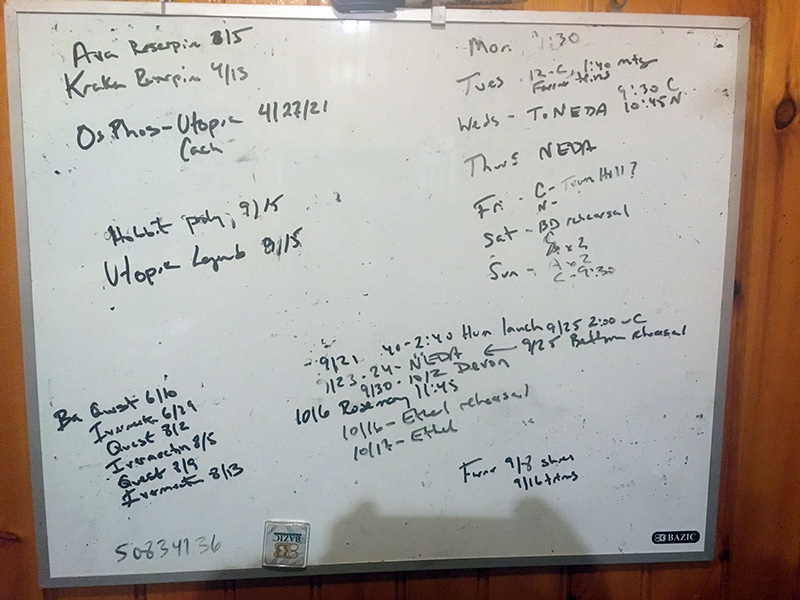 Ava Reserpin 8/5
Kraken Reserpin 4/13
OsPhos-Utopia 4/27/21
Cach
Hobbit poly; 9/15
Utopia Legend 8/15
Ba Quest 6/10
Ivermectin 6/29
Quest 8/2
Ivermectin 8/5
Quest 8/9
Ivermectin 8/13
50834136
Mon 1:30
Tues 12-C, 1:40 mtg
Farrier trims
Weds - To NEDA 9:30 C
10:45 N
Thurs NEDA
Fri - C- Town Hall?
N-
Sat - BD rehearsal
C
A x 2
Sun - A x 2
C - 9:30
9/21 40-2:40 Hum lunch 9/25 2:00 - C
9/23-24-NEDA ← 9/25 Bethem rehearsal
9/30-10/2 Devon
10/6 Rosemary 11:45
10/16-Ethel rehearsal
10/17-Ethel
Farrier 9/8 shoes
9/16 trims
BAZIC
BAZIC